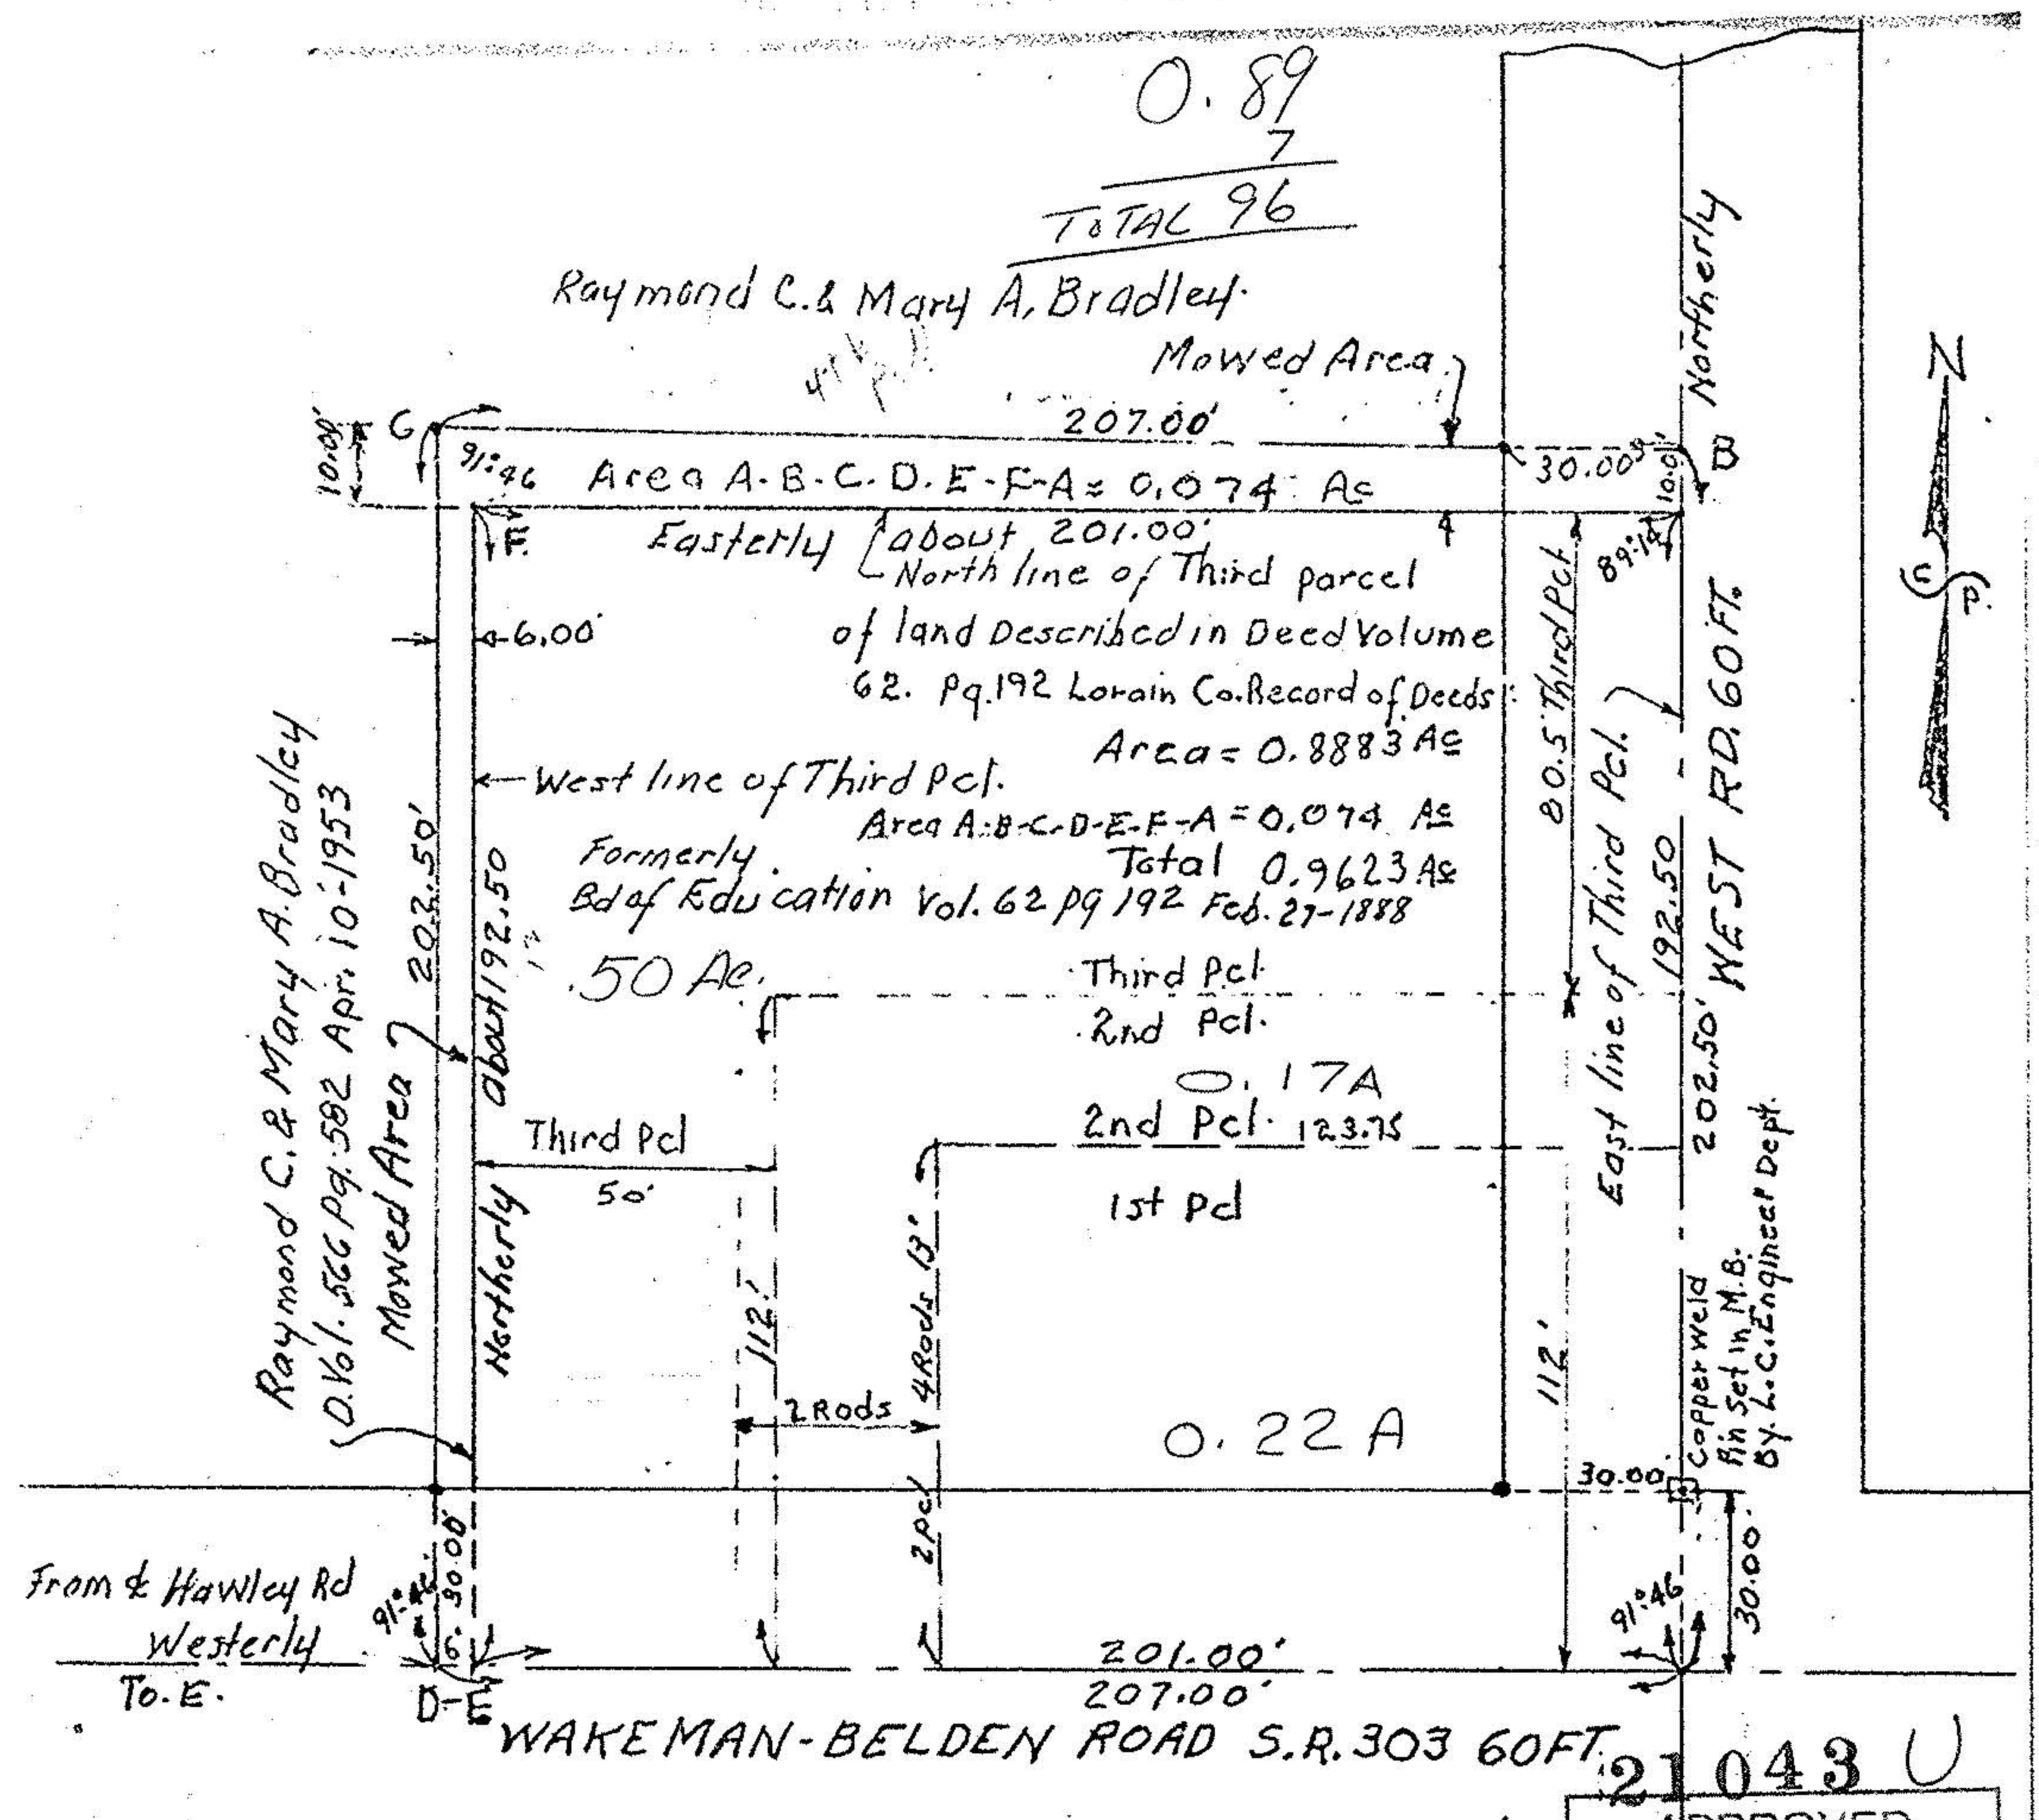 0.89
7
TOTAL 96
Raymond C. & Mary A. Bradley.
Mowed Area
Northerly
N
10.00'
C
207.00'
B
91°46
Area A-B-C-D-E-F-A = 0.074 Ac
30.00
10.0
F.
Easterly
about 201.00'
North line of Third parcel
of land Described in Deed Volume
62. Pg.192 Lorain Co. Record of Deeds
89°14
6.00'
Area = 0.8883 Ac
West line of Third Pcl.
Area A-B-C-D-E-F-A = 0.074 Ac
Total 0.9623 Ac
Formerly
Bd of Education Vol. 62 pg 192 Feb. 27-1888
.50 Ac.
Third Pcl
2nd Pcl.
0.17A
2nd Pcl. 123.75
1st Pcl
Third Pcl
50'
2 Rods
0.22 A
112'
4 Rods 13'
2 Pcl
112'
80.5 Third Pcl
East line of Third Pcl.
192.50
202.50'
WEST RD. 60 FT.
Copperweld
Pin Set in M.B.
By. L.C. Engineer Dept.
30.00
30.00
91°46
Raymond C. & Mary A. Bradley
D.Vol. 566 Pg. 582 Apr. 10-1953
Mowed Area
202.50'
about 192.50
Northerly
30.00
91°46
6'
From ℄ Hawley Rd
Westerly
To. E.
D-E
201.00'
207.00'
WAKEMAN-BELDEN ROAD S.R. 303 60FT.
21043 U
APPROVED